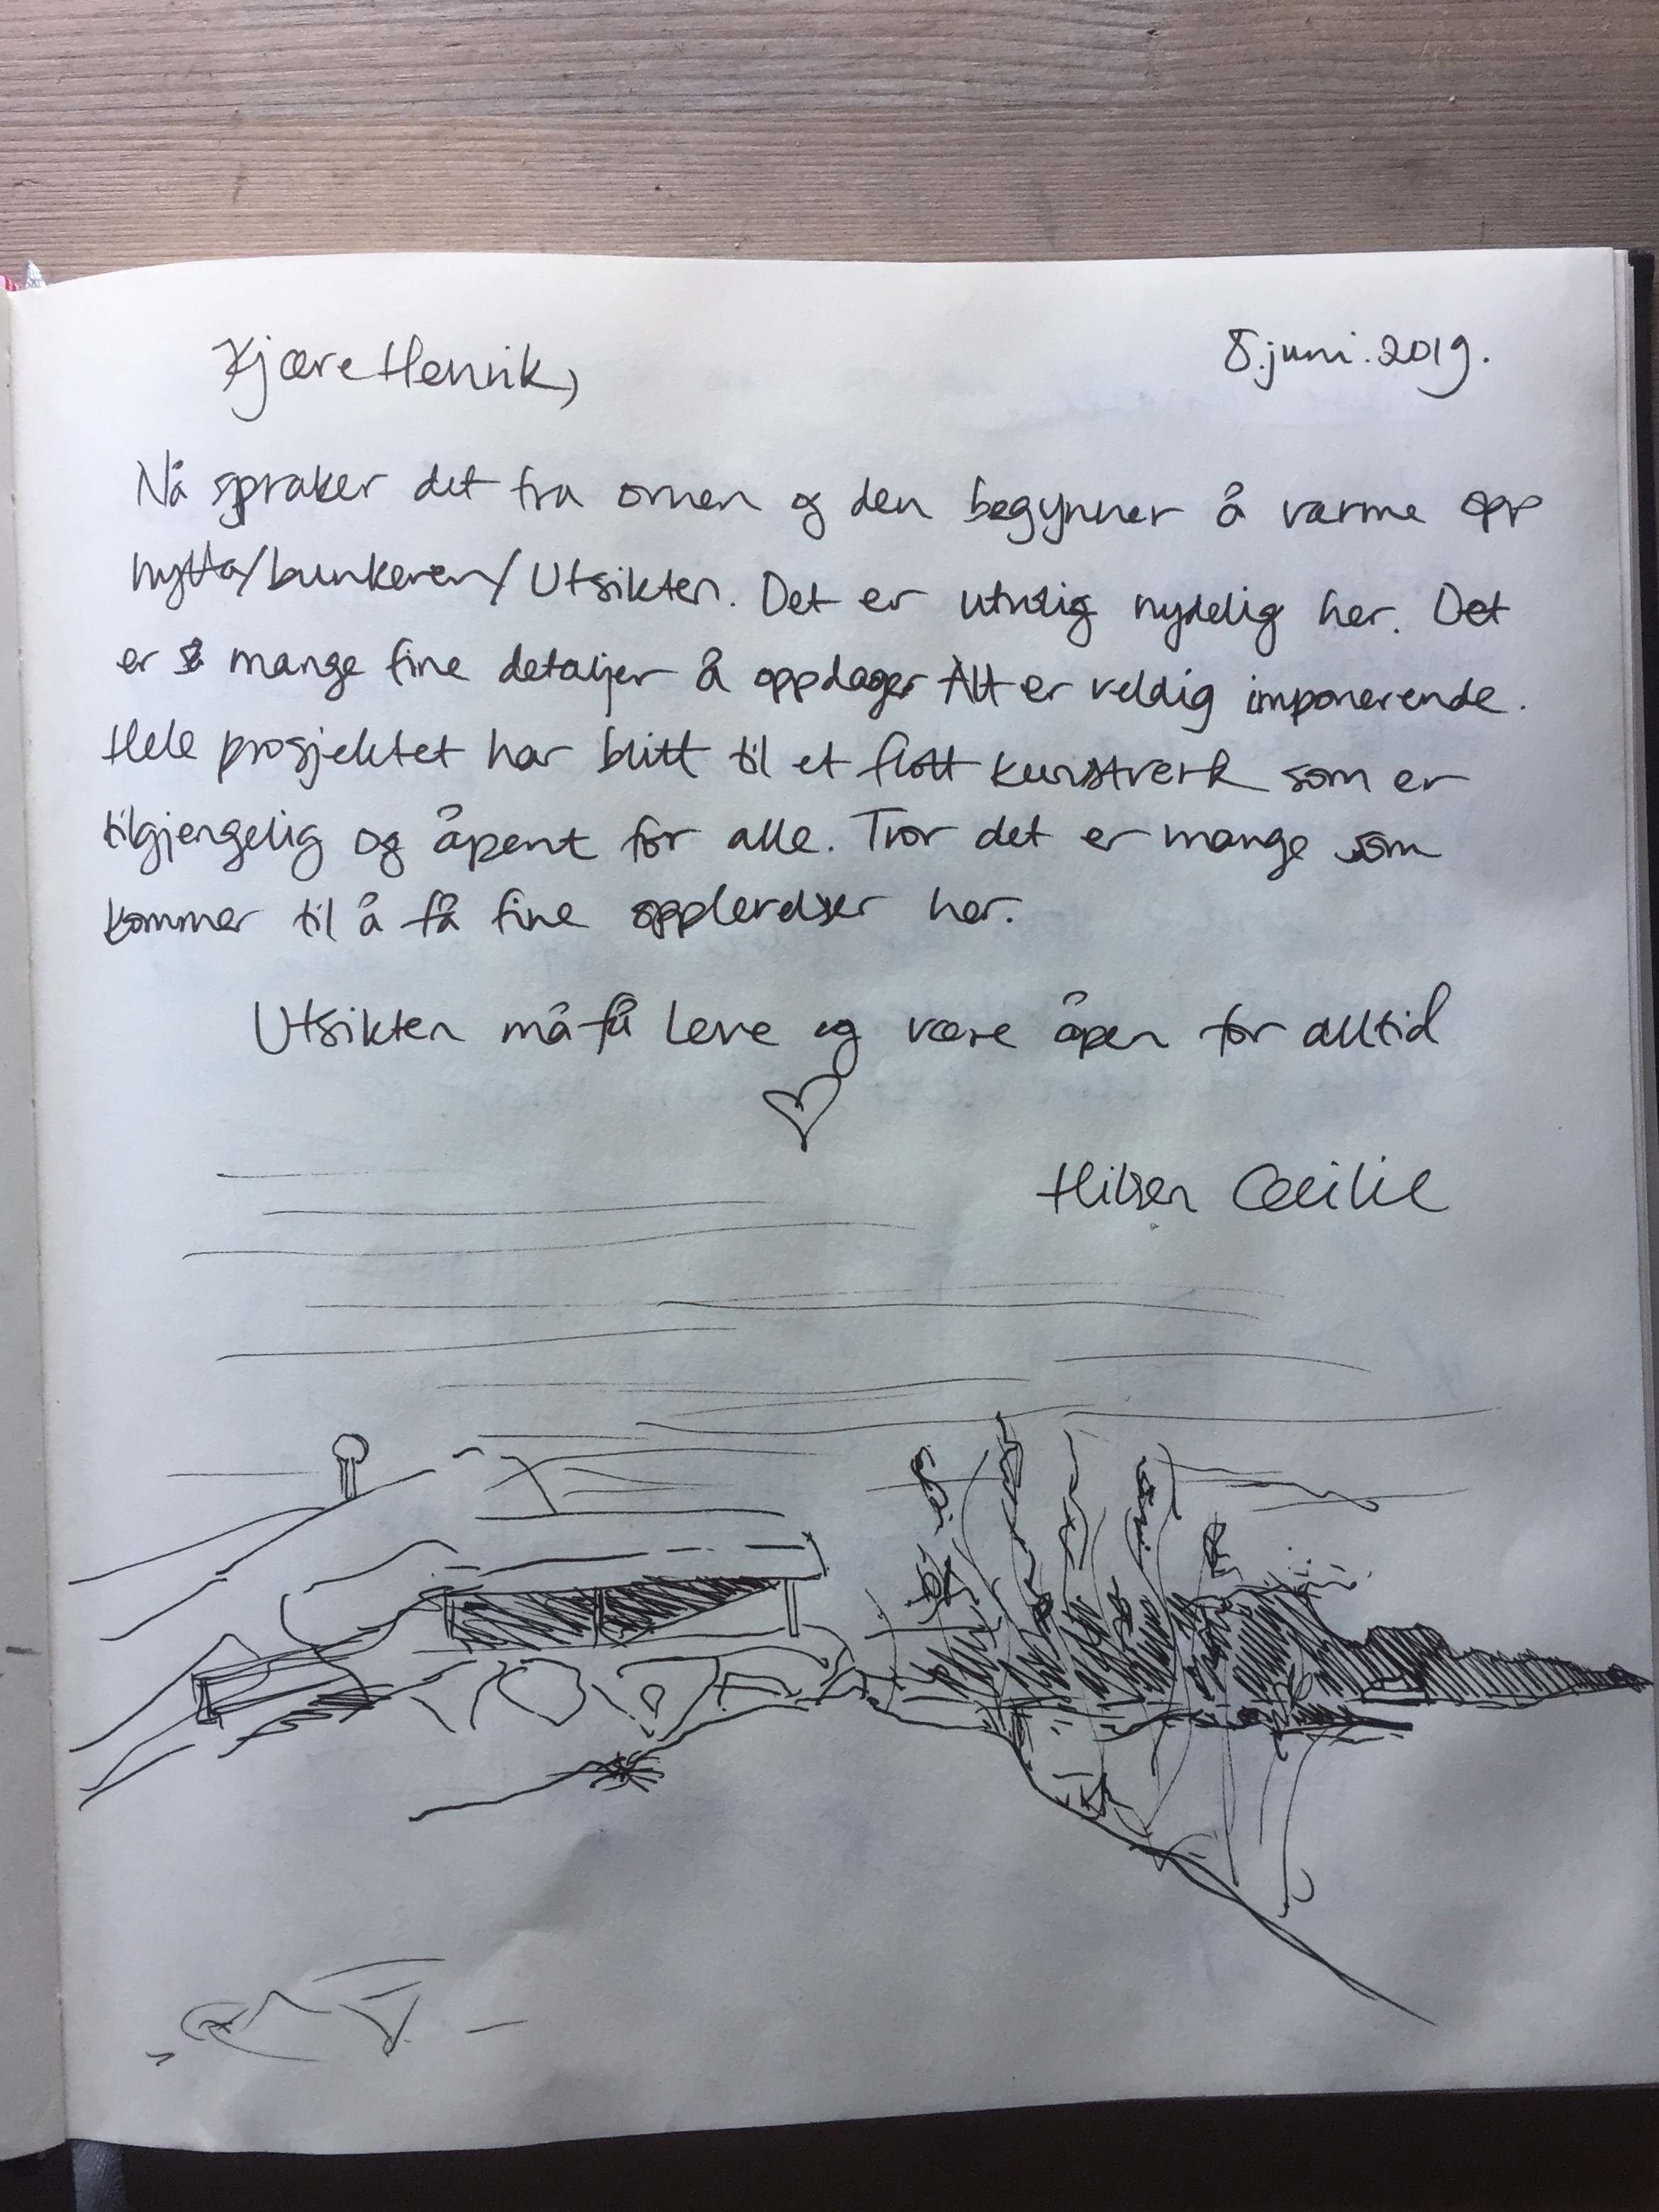 Kjære Henrik,
8. juni. 2019.
Nå spraker det fra ovnen og den begynner å varme opp
hytta/bunkeren/Utsikten. Det er utrolig nydelig her. Det
er så mange fine detaljer å oppdage. Alt er veldig imponerende.
Hele prosjektet har blitt til et flott kunstverk som er
tilgjengelig og åpent for alle. Tror det er mange som
kommer til å få fine opplevelser her.
Utsikten må få leve og være åpen for alltid
Hilsen Cecilie